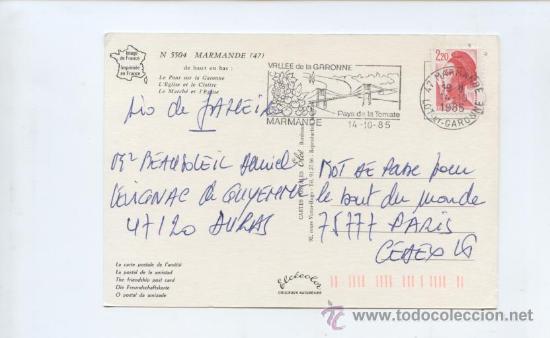 Image
de France
Imprimée
en France
N 5504 MARMANDE (47)
de haut en bas :
Le Pont sur la Garonne
L'Eglise et le Cloître
Le Marché et l'Eglise
VALLEE de la GARONNE
Pays de la Tomate
MARMANDE
14-10-85
2,20
47 MARMANDE
1985
LOT-ET-GARONNE
Rio de JANEIR
BEAUSOLEIL Daniel
de GUYENNE
47120 DURAS
MOT DE PASSE pour
le bout du monde
75777 PARIS
CEDEX 16
CARTES POSTALES
La carte postale de l'amitié
La postal de la amistad
The friendship post card
Die Freundschaftskarte
O postal da amizade
Elcécolor
COULEURS NATURELLES
todocoleccion.net